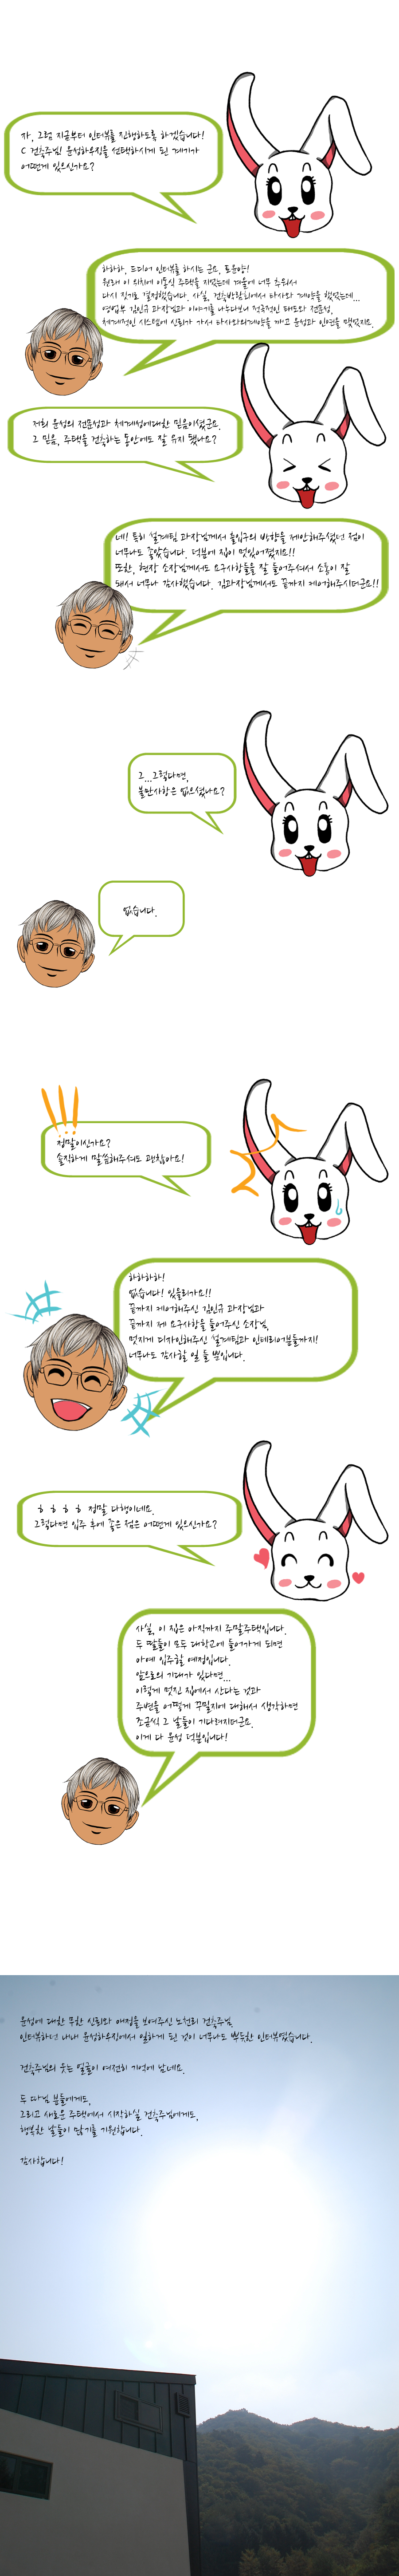 자, 그럼 지금부터 인터뷰를 진행하도록 하겠습니다!
C 건축주님! 윤성하우징을 선택하시게 된 계기가
어떤게 있으신가요?
하하하, 드디어 인터뷰를 하시는 군요, 토윤양!
원래 이 위치에 이동식 주택을 지었는데 겨울에 너무 추워서
다시 짓기로 결정했습니다. 사실, 건축박람회에서 타사와 계약을 했었는데...
영업부 김인규 과장님과 이야기를 나누다보니 적극적인 태도와 전문성,
체계적인 시스템에 신뢰가 가서 타사와의계약을 깨고 윤성과 인연을 맺었지요.
저희 윤성의 전문성과 체계성에대한 믿음이셨군요.
그 믿음, 주택을 건축하는 동안에도 잘 유지 됐나요?
네! 특히 설계팀 과장님께서 출입구의 방향을 제안해주셨던 점이
너무나도 좋았습니다. 덕분에 집이 멋있어졌지요!!
또한, 현장 소장님께서도 요구사항들을 잘 들어주셔서 소통이 잘
돼서 너무나 감사했습니다. 김과장님께서도 끝까지 케어해주시더군요!!
그...그렇다면,
불만사항은 없으셨나요?
없습니다.
정말이신가요?
솔직하게 말씀해주셔도 괜찮아요!
하하하하!
없습니다! 있을리가요!!
끝까지 케어해주신 김인규 과장님과
끝까지 제 요구사항을 들어주신 소장님,
멋지게 디자인해주신 설계팀과 인테리어분들까지!
너무나도 감사할 일 들 뿐입니다.
ㅎ ㅎ ㅎ ㅎ 정말 다행이네요.
그렇다면 입주 후에 좋은 점은 어떤게 있으신가요?
사실, 이 집은 아직까지 주말주택입니다.
두 딸들이 모두 대학교에 들어가게 되면
아예 입주할 예정입니다.
앞으로의 기대가 있다면...
이렇게 멋진 집에서 산다는 것과
주변을 어떻게 꾸밀지에 대해서 생각하면
조금씩 그 날들이 기다려지더군요.
이게 다 윤성 덕분입니다!
윤성에 대한 무한 신뢰와 애정을 보여주신 노천리 건축주님.
인터뷰하던 내내 윤성하우징에서 일하게 된 것이 너무나도 뿌듯한 인터뷰였습니다.
건축주님의 웃는 얼굴이 여전히 기억에 남네요.
두 따님 분들에게도,
그리고 새로운 주택에서 시작하실 건축주님에게도,
행복한 날들이 많기를 기원합니다.
감사합니다!